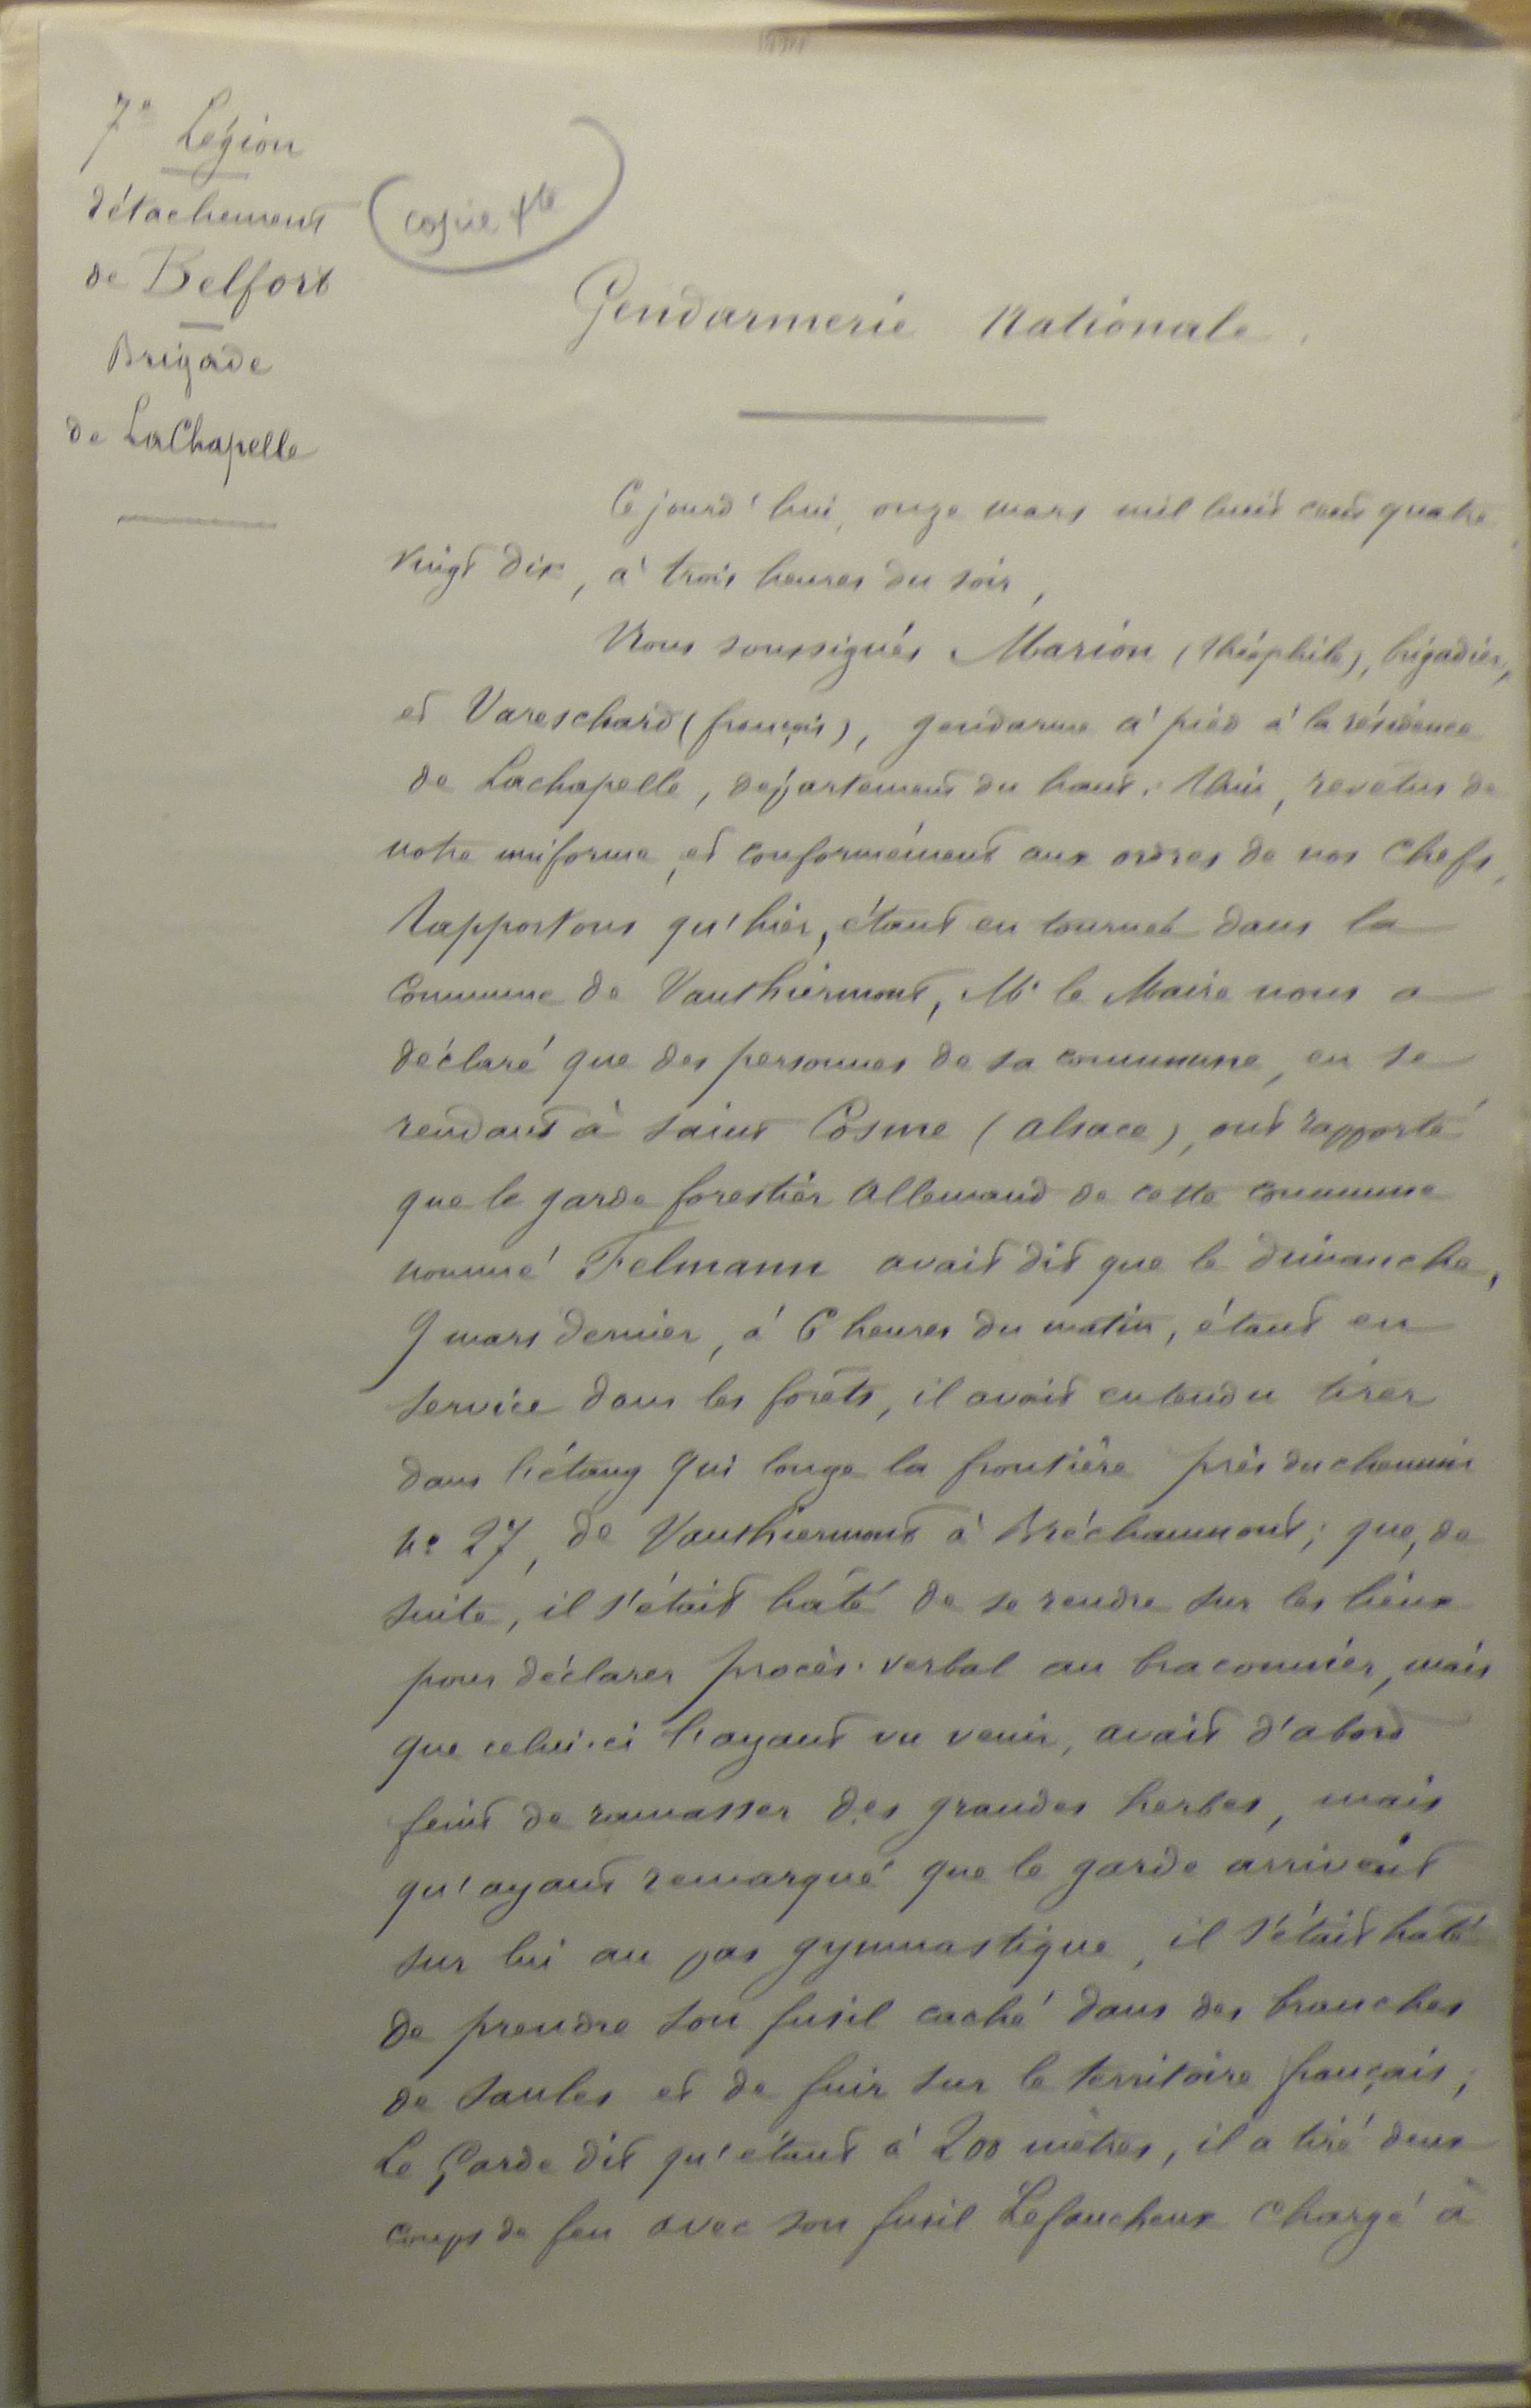 7e Légion
détachement
de Belfort
Brigade
de LaChapelle
copie
Gendarmerie Nationale.
Cejourd'hui, onze mars mil huit cent quatre
vingt dix, à trois heures du soir,
Nous soussignés Marion (Théophile), brigadier,
et Vareschard (françois), gendarme à pied à la résidence
de Lachapelle, département du haut-Rhin, revêtus de
notre uniforme, et conformément aux ordres de nos chefs,
rapportons qu'hier, étant en tournée dans la
commune de Vauthiermont, Mr le Maire nous a
déclaré que des personnes de sa commune, en se
rendant à Saint Cosme (alsace), ont rapporté
que le garde forestier allemand de cette commune
nommé Felmann avait dit que le dimanche,
9 mars dernier, à 6 heures du matin, étant en
service dans les forêts, il avait entendu tirer
dans l'étang qui longe la frontière près du chemin
no 27, de Vauthiermont à Bréchaumont; que, de
suite, il s'était hâté de se rendre sur les lieux
pour déclarer procès-verbal au braconnier, mais
que celui-ci l'ayant vu venir, avait d'abord
feint de ramasser des grandes herbes, mais
qu'ayant remarqué que le garde arrivait
sur lui au pas gymnastique, il s'était hâté
de prendre son fusil caché dans des branches
de saules et de fuir sur le territoire français;
Le Garde dit qu'étant à 200 mètres, il a tiré deux
coups de feu avec son fusil Lefaucheux chargé à